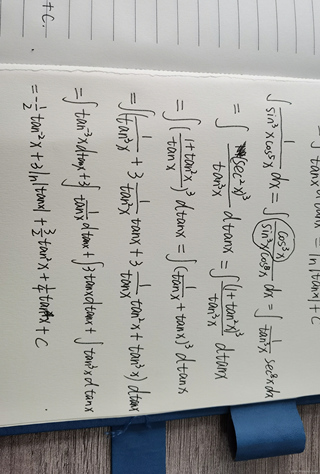 = ∫ tanx dtanx = ln|tanx| + C
∫ 1/(sin³x cos⁵x) dx = ∫ cos³x/(sin³x cos⁸x) dx = ∫ 1/tan³x sec⁸x dx
= ∫ (sec²x)³/tan³x dtanx = ∫ (1+tan²x)³/tan³x dtanx
= ∫ ((1+tan²x)/tanx)³ dtanx = ∫ (1/tanx + tanx)³ dtanx
= ∫ (1/tan³x + 3 1/tan²x tanx + 3 1/tanx tan²x + tan³x) dtanx
= ∫ tan⁻³x dtanx + 3∫ 1/tanx dtanx + ∫ 3tanx dtanx + ∫ tan³x dtanx
= -1/2 tan⁻²x + 3 ln|tanx| + 3/2 tan²x + 1/4 tan⁴x + C
+C.